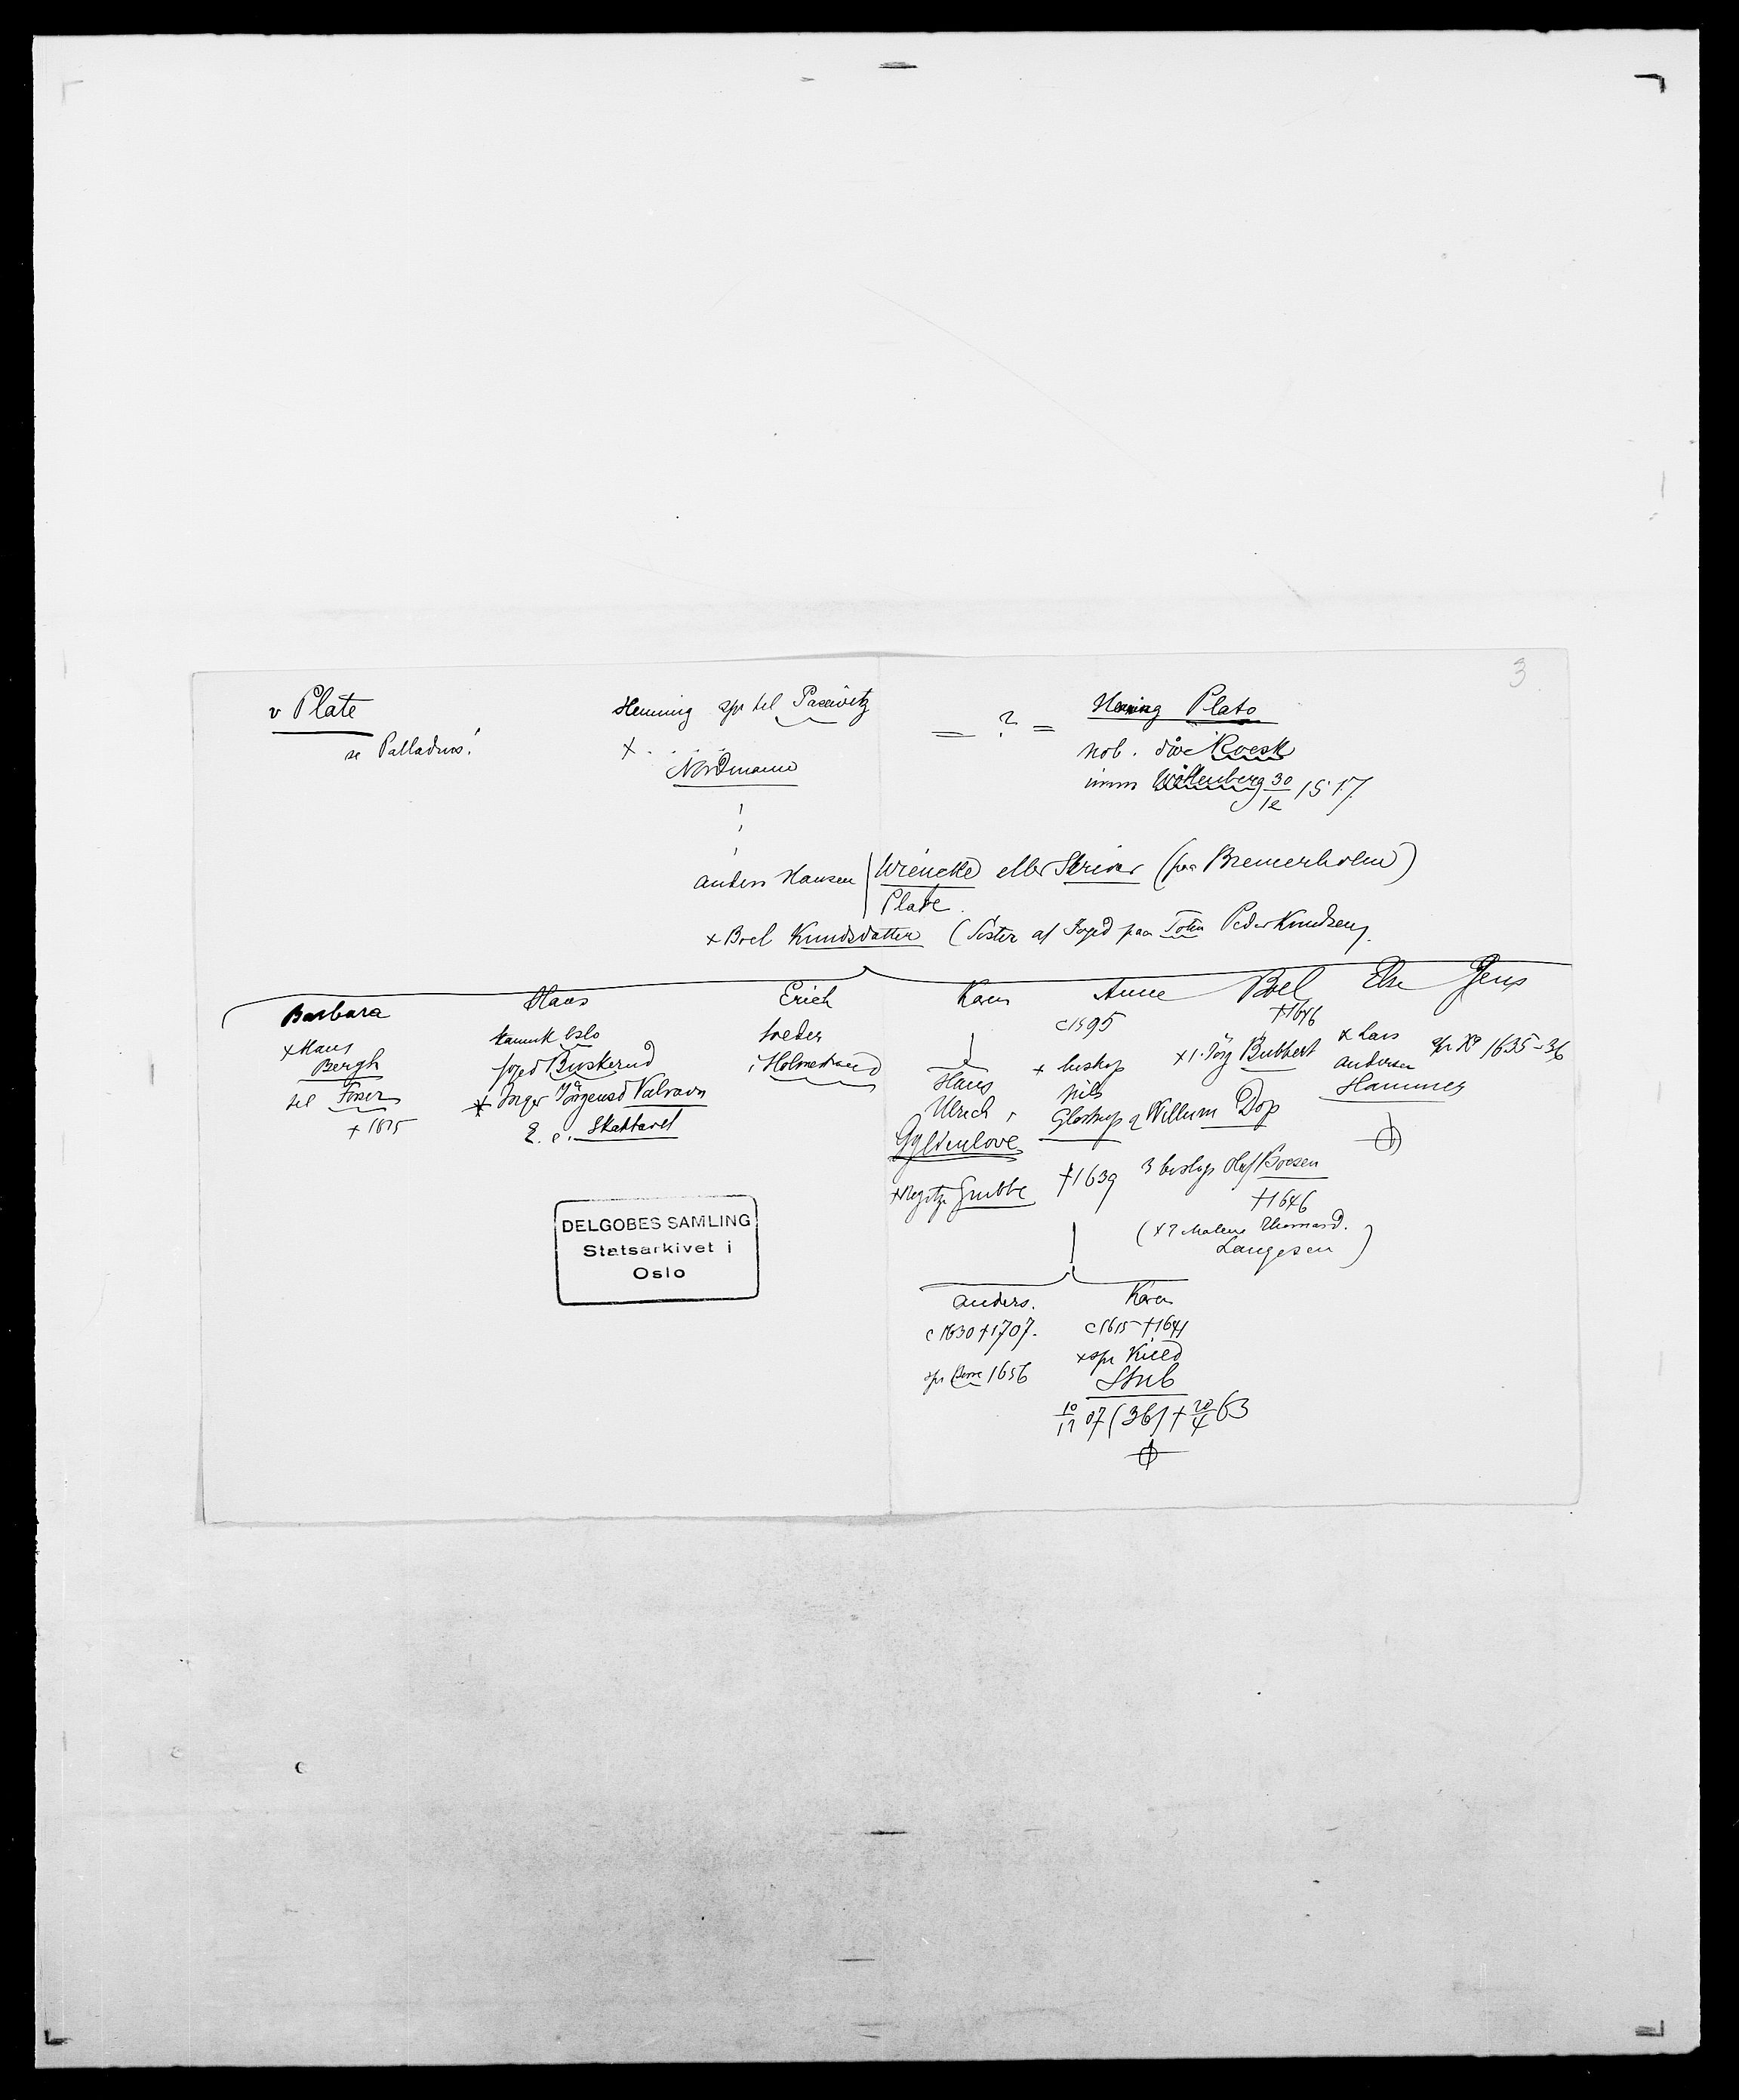 3
v Plate
se Palladius!
Henning spr til Pasewitz
x . . . .
Nordmann
= ? =
Henning Plato
nob. diöc Roesk
imm Wittenberg 30/12 1517
Anders Hansen
Wiencke eller Skriver (paa Bremerholm)
Plate.
x Boel Knudsdatter (Søster af Foged paa Toten Peder Knudsen)
Barbara
x Hans
Bergh
til Foser
Hans
kannik Oslo
foged Buskerud
x Inger Jörgensd Valravn
E. e. Skaktavel
Erich
tolder
i Holmestrand
Karen
Hans
Ulrich
Gyldenlove
x Regitze Grubbe
Anne
c1595
x biskop
Nils
Glostrup
†1639
Boel
†1646
x 1. Jörg Bubbert
2 Willum Dop
3 biskop Oluf Boesen
†1646
(x ? Malene Thomasd.
Langesen)
Else
x Lars
Andersen
Hammer
Jens
1635-36
Anders.
c 1630 †1707.
spr Borre 1656
Karen
c1615 †1641
x spr Kield
Stub
07 (36) † 20/4 63
DELGOBES SAMLING
Statsarkivet i
Oslo